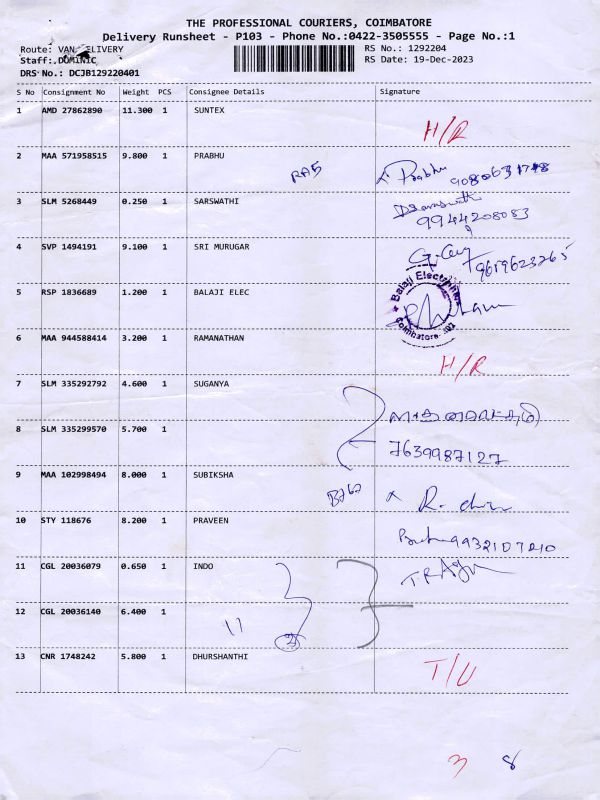 THE PROFESSIONAL COURIERS, COIMBATORE
Delivery Runsheet - P103 - Phone No.:0422-3505555 - Page No.:1
Route: VAN DELIVERY RS No.: 1292204
Staff: DOMINIC RS Date: 19-Dec-2023
DRS No.: DCJB129220401
S No Consignment No Weight PCS Consignee Details Signature
1 AMD 27862890 11.300 1 SUNTEX
H/R
2 MAA 571958515 9.800 1 PRABHU
Prabhu
3 SLM 5268449 0.250 1 SARSWATHI
9944208083
4 SVP 1494191 9.100 1 SRI MURUGAR
9619623265
5 RSP 1836689 1.200 1 BALAJI ELEC
Balaji Electricals
Coimbatore
6 MAA 944588414 3.200 1 RAMANATHAN
H/R
7 SLM 335292792 4.600 1 SUGANYA
8 SLM 335299570 5.700 1
7639987127
9 MAA 102998494 8.000 1 SUBIKSHA
B767
10 STY 118676 8.200 1 PRAVEEN
11 CGL 20036079 0.650 1 INDO
12 CGL 20036140 6.400 1
11
13 CNR 1748242 5.800 1 DHURSHANTHI
T/U
3 8